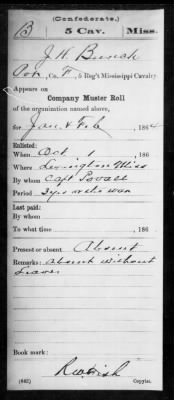 (Confederate.)
B 5 Cav. Miss.
J. H. Bunch
Co. F, 5 Reg't Mississippi Cavalry
Appears on
Company Muster Roll
of the organization named above,
for Jan & Feb, 1864
Enlisted:
When Oct 1, 186
Where Lexington Miss
By whom Capt Povall
Period 3 yrs or the war
Last paid:
By whom
To what time , 186
Present or absent Absent
Remarks: Absent without
Leave
Book mark:
(642) Copyist.